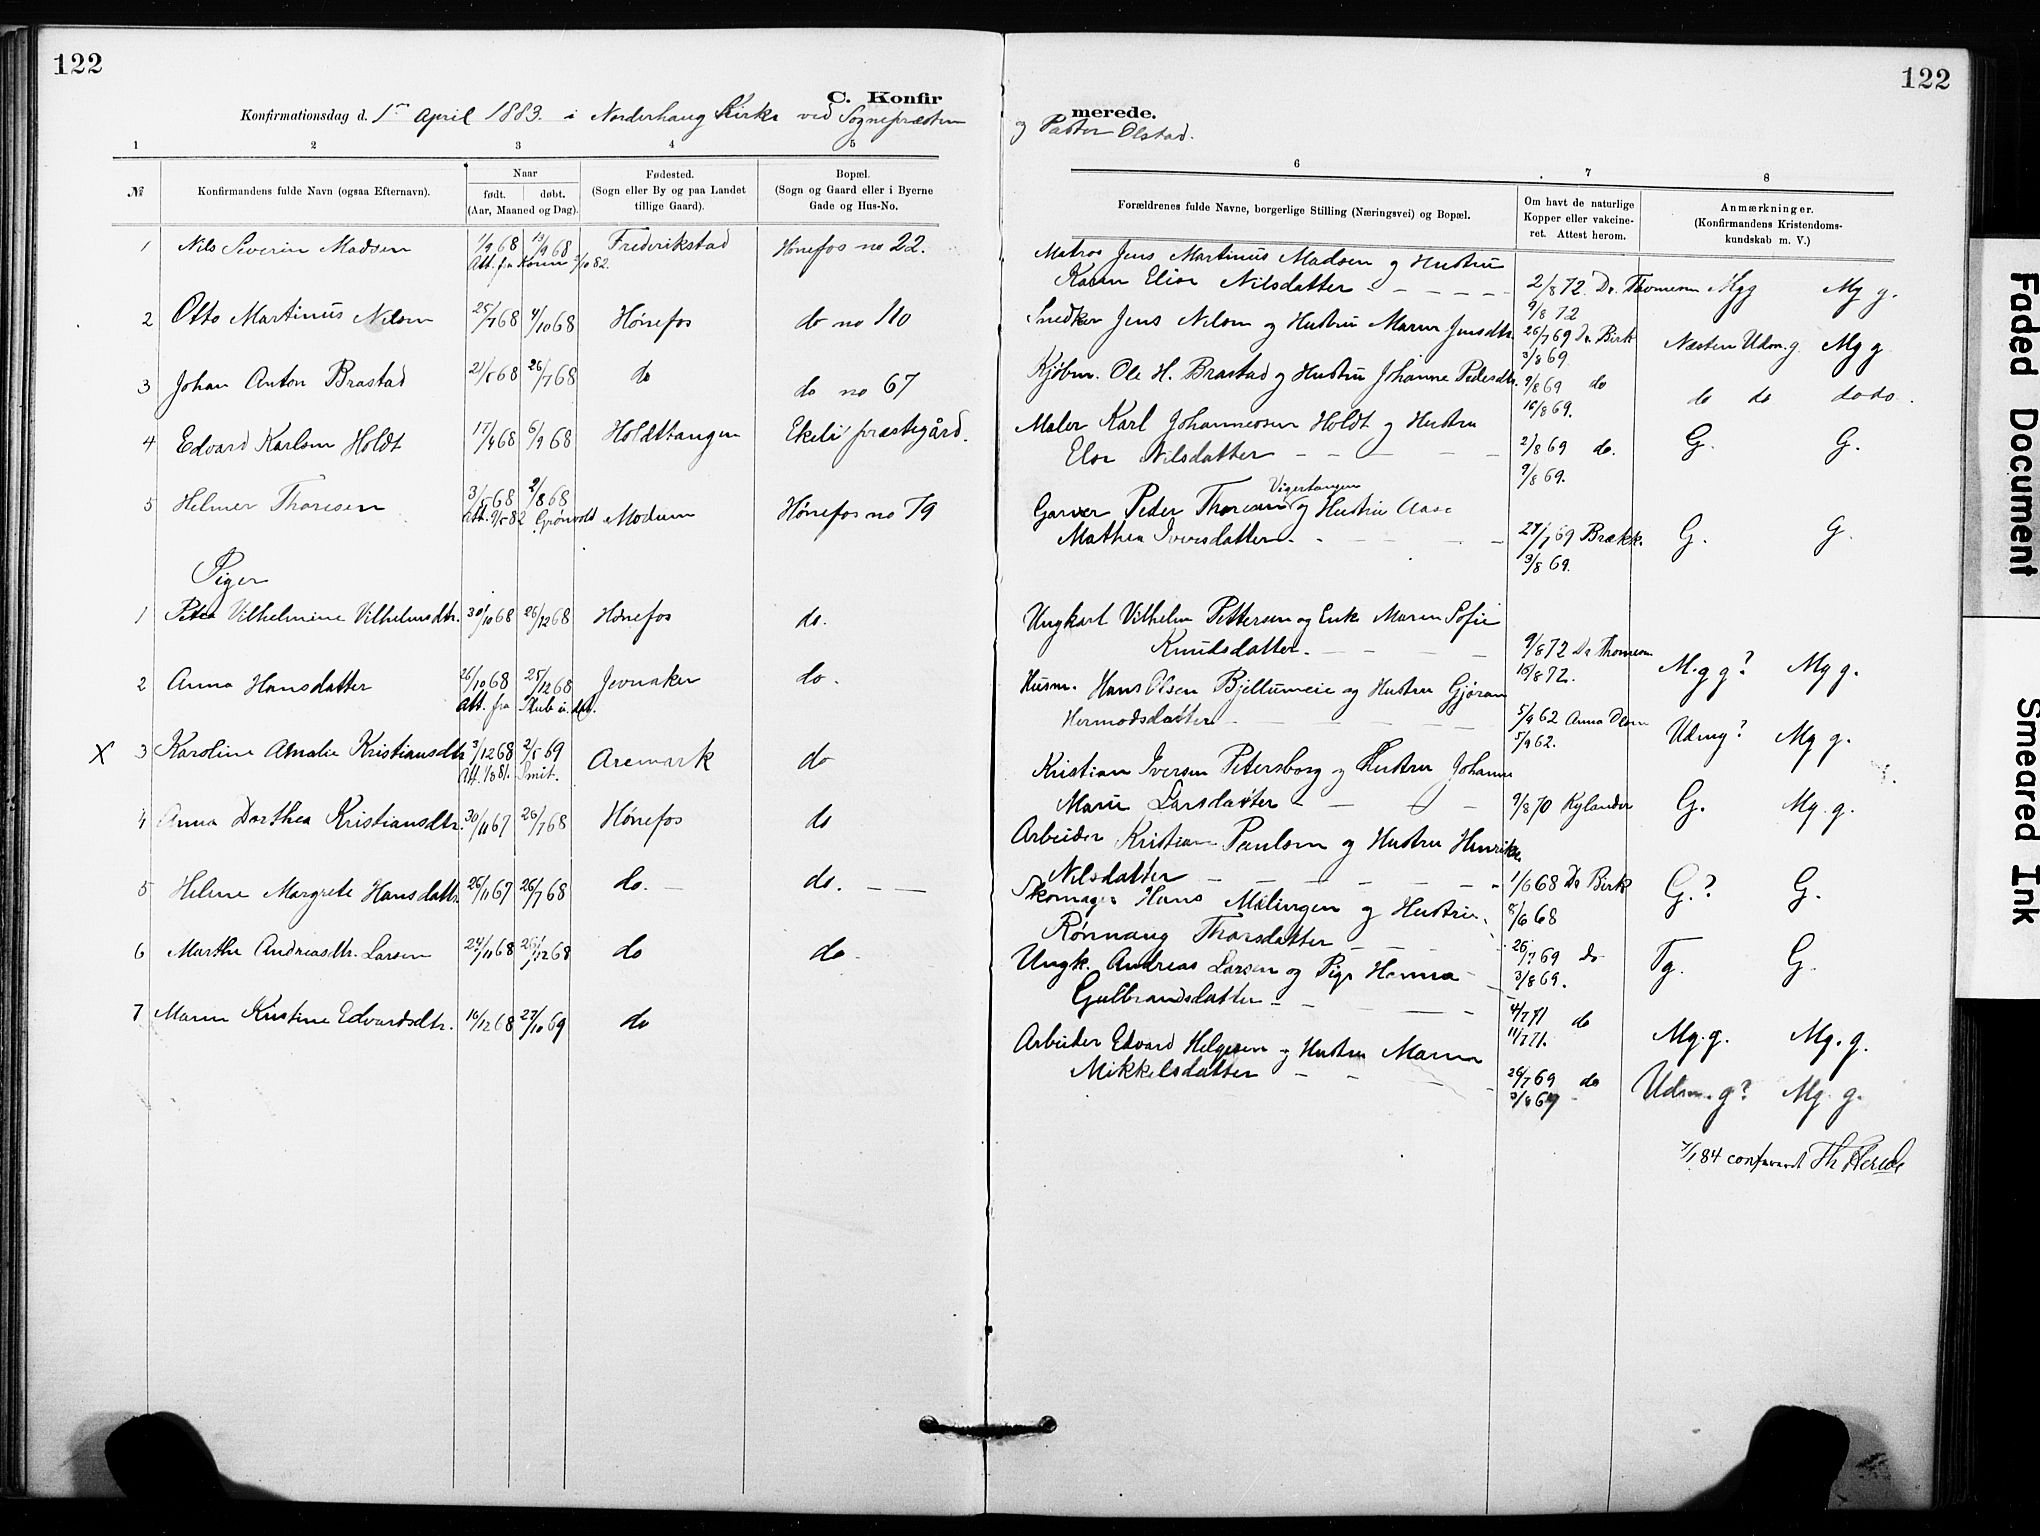 122
C. Konfir
Konfirmationsdag d. 1ste April 1883. i Norderhaug Kirke ved Sognepræsten
1 2 3 4 5
№
Konfirmandens fulde Navn (ogsaa Efternavn).
Naar
født. døbt.
(Aar, Maaned og Dag).
Fødested.
(Sogn eller By og paa Landet
tillige Gaard).
Bopæl.
(Sogn og Gaard eller i Byerne
Gade og Hus-No.
1 Nils Severin Madsen 1/9 68 13/9 68 Frederikstad Hønefos no 22.
Att. fra 3/10 82.
2 Otto Martinus Nilsen 25/7 68 4/10 68 Hønefos do no 110
3 Johan Anton Brastad 21/5 68 26/7 68 do do no 67
4 Edvard Karlsen Holdt 17/4 68 6/9 68 Holdttangen Ekeli præstegård.
5 Helmer Thoresen 3/5 68 2/8 68 Modum Hønefos no 79
Att. 9/5 82 Grønvold
Piger
1 Petra Vilhelmine Vilhelmsdtr. 30/10 68 26/12 68 Hønefos do.
2 Anna Hansdatter 26/10 68 25/12 68 Jevnaker do.
Att. fra
X 3 Karoline Amalie Kristiansdtr 3/12 68 2/5 69 Aremark do
Att. 1881. Smit.
4 Anna Dorthea Kristiansdtr. 30/11 67 26/7 68 Hønefos do
5 Helene Margrete Hansdattr. 26/11 67 26/7 68 do. — do. — —
6 Marthe Andreasdtr. Larsen 24/11 68 26/12 68 do do.
7 Maren Kristine Edvardsdtr. 16/12 68 27/10 69 do
122
merede.
og Pastor Olstad.
6 7 8
Forældrenes fulde Navne, borgerlige Stilling (Næringsvei) og Bopæl.
Om havt de naturlige
Kopper eller vakcine-
ret. Attest herom.
Anmærkninger.
(Konfirmandens Kristendoms-
kundskab m. V.)
Matros Jens Martinus Madsen og Hustru
Karen Elise Nilsdatter - - - - - 2/8 72. Dr. Thomesen Mgg Mg g.
9/8 72
Snedker Jens Nilsen og Hustru Maren Jensdtr. 26/7 69 Dr. Birk Næsten Udm. g. Mg g
3/8 69.
Kjøbm. Ole H. Brastad og Hustru Johanne Pedersdtr. 9/8 69 do do do do do.
16/8 69.
Maler Karl Johannesen Holdt og Hustru
Elise Nilsdatter - - - - - 2/8 69 do. G. G.
9/8 69.
Vigertangen
Garver Peder Thoresen og Hustru Aase
Mathea Iversdatter. - - - - 27/7 69 Brækk. G. G.
3/8 69.
Ungkarl Vilhelm Pettersen og Enke Maren Sofie
Knudsdatter. - - - - 9/8 72 Dr Thomesen M.g g? Mg g.
16/8 72.
Husm. Hans Olsen Bjellumeie og Hustru Gjøran
Hermodsdatter - - - - 5/9 62 Anna Udmg? Mg g.
5/9 62.
Kristian Iversen Petersborg og Hustru Johanne
Marie Larsdatter - - - - 9/8 70 Rylander G. Mg. g.
Arbeider Kristian Paulsen og Hustru Henrikke
Nilsdatter - - - - - 1/6 68 Dr Birk G.? G.
8/6 68
Skomager Hans Melingen og Hustru
Rønnaug Thorsdatter - - - 26/7 69 do Tg. G.
3/8 69.
Ungk. Andreas Larsen og Pige Hanna
Gulbrandsdatter - - - - 4/7 71 do Mg. g. Mg. g.
11/7 71.
Arbeider Edvard Helgesen og Hustru Maren
Mikkelsdatter - - - - 26/7 69 do Udm. g? Mg. g.
3/8 69
7/1 84 conferered
Faded Document
Smeared Ink